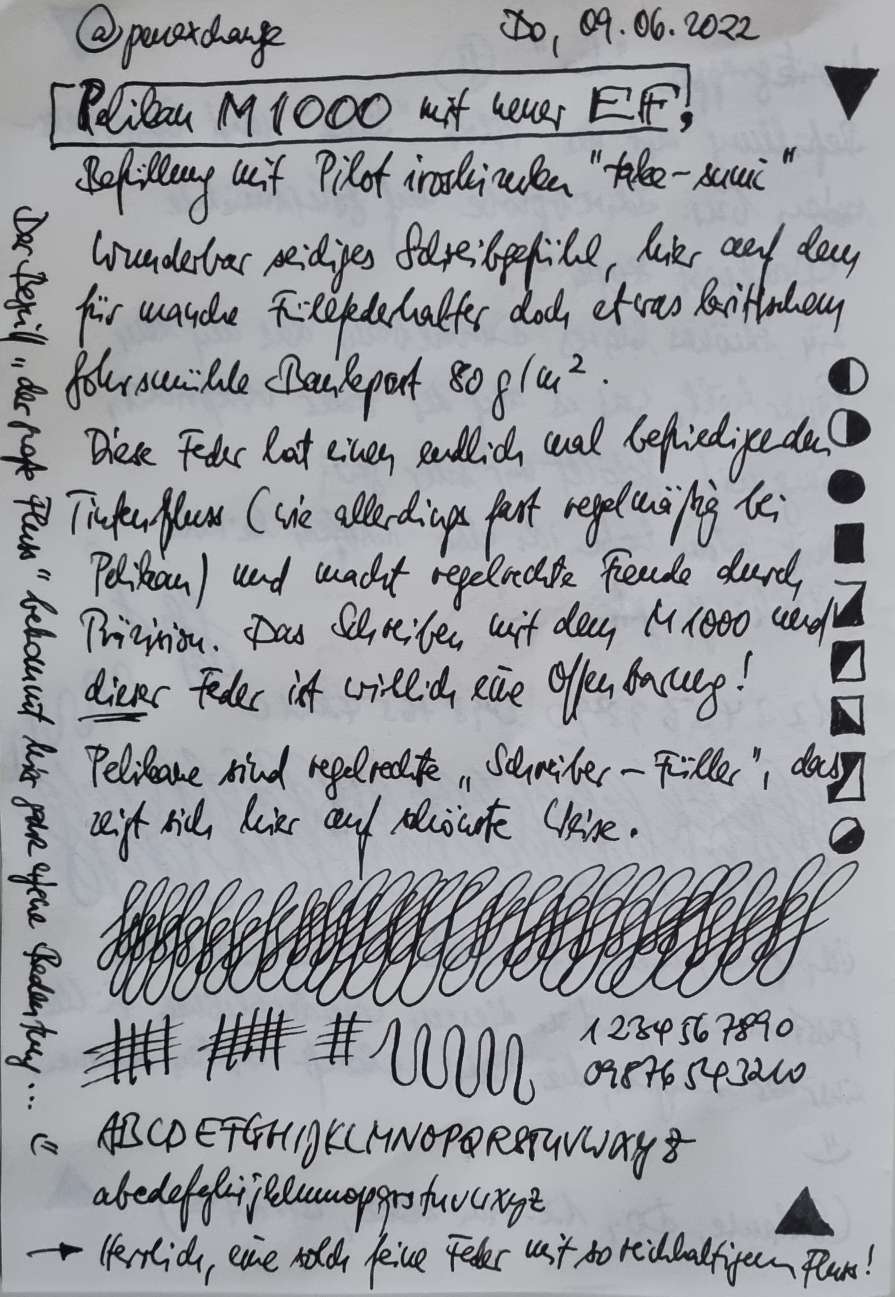 @penexchange Do, 09.06.2022
Pelikan M1000 mit neuer EF!
Befüllung mit Pilot iroshizuku "take-sumi"
Wunderbar seidiges Schreibgefühl, hier auf dem
für manche Füllfederhalter doch etwas kritischem
Gohrsmühle Bankpost 80 g/m².
Diese Feder hat einen endlich mal befriedigenden
Tintenfluss (wie allerdings fast regelmäßig bei
Pelikan) und macht regelrechte Freude durch
Präzision. Das Schreiben mit dem M1000 und
dieser Feder ist wirklich eine Offenbarung!
Pelikane sind regelrechte „Schreiber-Füller", das
zeigt sich hier auf schönste Weise.
1234567890
09876543210
ABCDEFGHIJKLMNOPQRSTUVWXYZ
abcdefghijklmnopqrstuvwxyz
→ Herrlich, eine solch feine Feder mit so reichhaltigem Fluss!
Der Begriff „der große Fluss" bekommt hier ganz eigene Bedeutung...